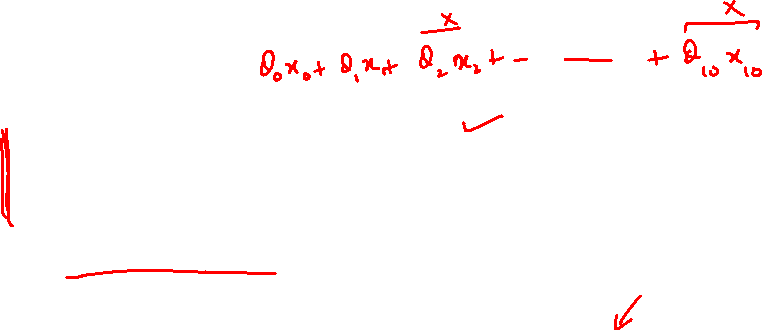 x x
θ₀x₀ + θ₁x₁ + θ₂x₂ + - — + θ₁₀x₁₀